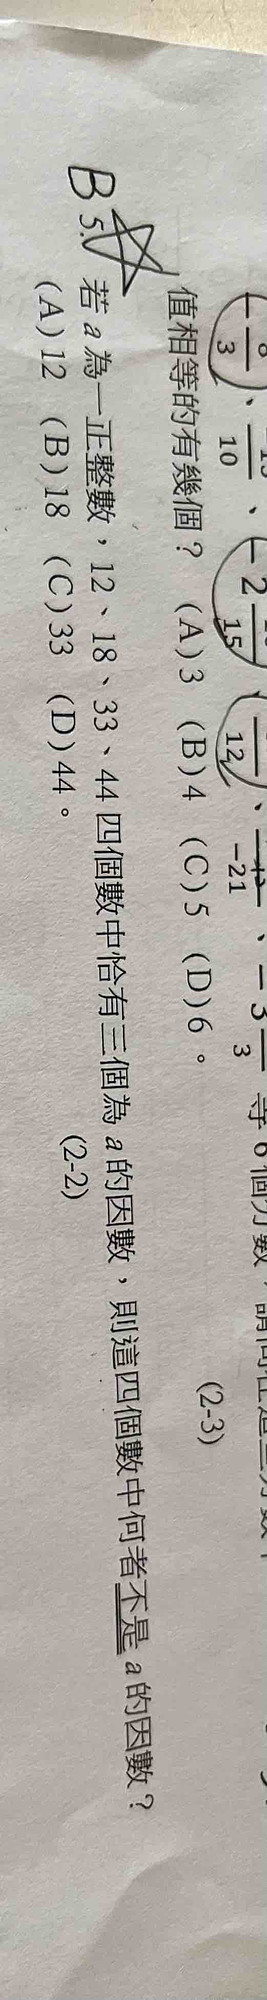 8/3、10、-2 15、12、-21、-3 3 等 6 個分數，
值相等的有幾個？ (A) 3 (B) 4 (C) 5 (D) 6。 (2-3)
B 5. 若 a 為一正整數，12、18、33、44 四個數中恰有三個為 a 的因數，則這四個數中何者不是 a 的因數？
(A) 12 (B) 18 (C) 33 (D) 44。 (2-2)